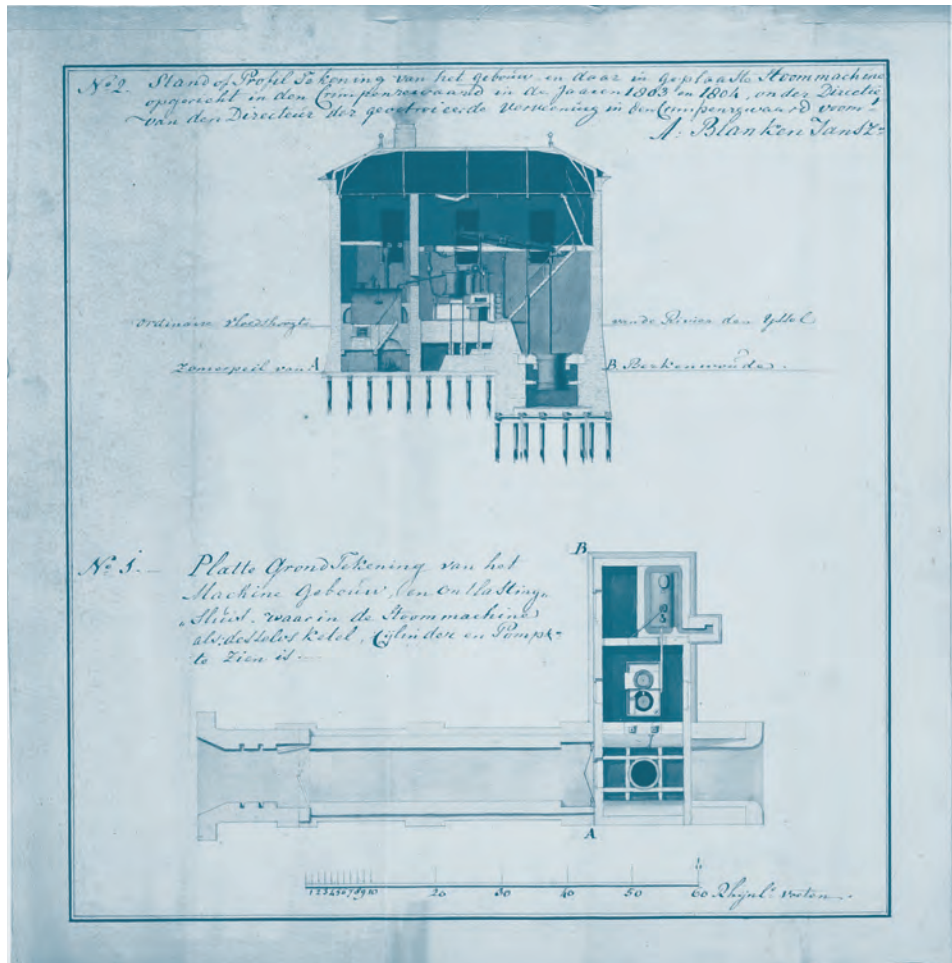 No. 2. Stand of Profil Tekening van het gebouw en daar in geplaatste Stoommachine
opgericht in den Crimpenrewaard in de Jaaren 1803 en 1804, onder Directie
van den Directeur der geoctroieerde Verveening in den Crimpenrewaard voorm.
A: Blanken Jansz=
ordinaire vloedshoogte van de Rivier den Yssel
Zomerpeil van A B Berkenwoude.
B
No. 1. Platte Grond Tekening van het
Machine Gebouw, en ontlasting
Sluis, waar in de Stoommachine
als: desselvs ketel, Cylinder en Pomp
te Zien is.
A
1 2 3 4 5 6 7 8 9 10 20 30 40 50 60 Rhijnl. voeten.